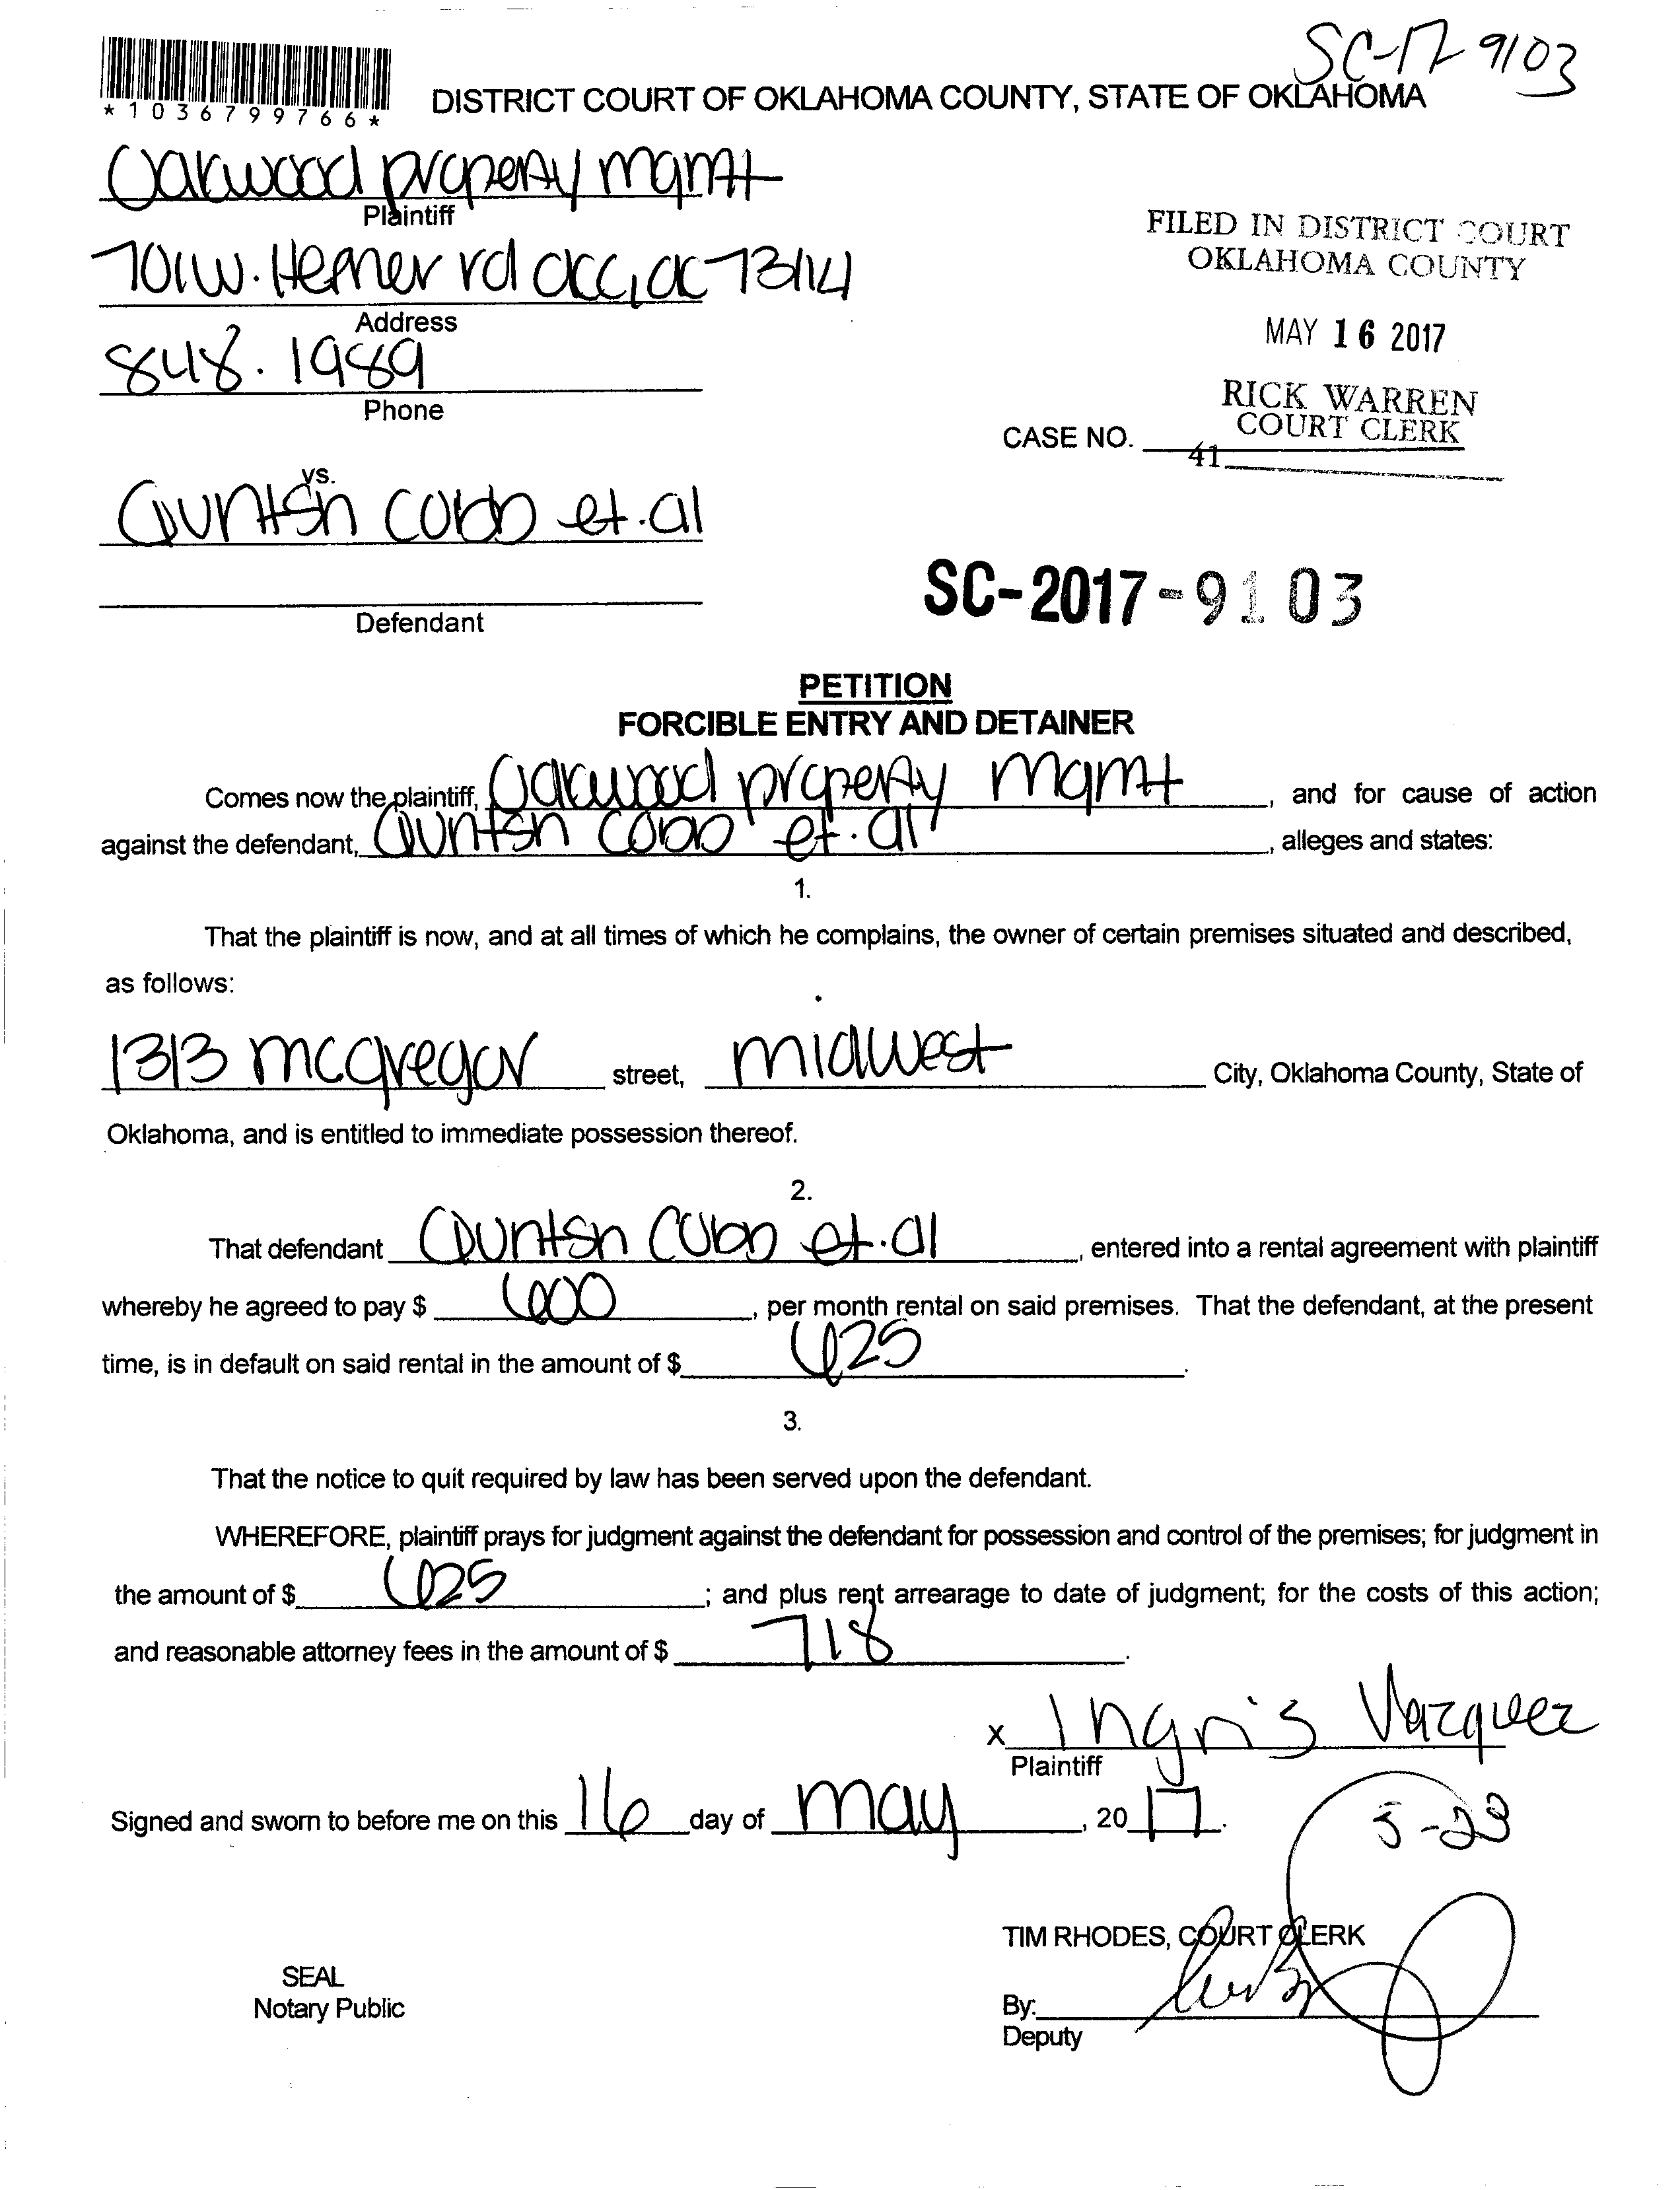 SC-17-9103
*1036799766*
DISTRICT COURT OF OKLAHOMA COUNTY, STATE OF OKLAHOMA
Oakwood property mgmt
Plaintiff
701 W. Hefner rd okc, ok 73114
Address
848.1989
Phone
FILED IN DISTRICT COURT
OKLAHOMA COUNTY
MAY 16 2017
RICK WARREN
COURT CLERK
CASE NO.
41
vs.
Quntsn Cobb et.al
Defendant
SC-2017-9103
PETITION
FORCIBLE ENTRY AND DETAINER
Comes now the plaintiff, Oakwood property mgmt, and for cause of action
against the defendant, Quntsn Cobb et.al, alleges and states:
1.
That the plaintiff is now, and at all times of which he complains, the owner of certain premises situated and described,
as follows:
1313 mcgregor street, midwest City, Oklahoma County, State of
Oklahoma, and is entitled to immediate possession thereof.
2.
That defendant Quntsn Cobb et.al, entered into a rental agreement with plaintiff
whereby he agreed to pay $ 600, per month rental on said premises. That the defendant, at the present
time, is in default on said rental in the amount of $ 625.
3.
That the notice to quit required by law has been served upon the defendant.
WHEREFORE, plaintiff prays for judgment against the defendant for possession and control of the premises; for judgment in
the amount of $ 625; and plus rent arrearage to date of judgment; for the costs of this action;
and reasonable attorney fees in the amount of $ 718.
x Ingris Vazquez
Plaintiff
Signed and sworn to before me on this 16 day of may, 2017.
5-23
TIM RHODES, COURT CLERK
SEAL
Notary Public
By:
Deputy